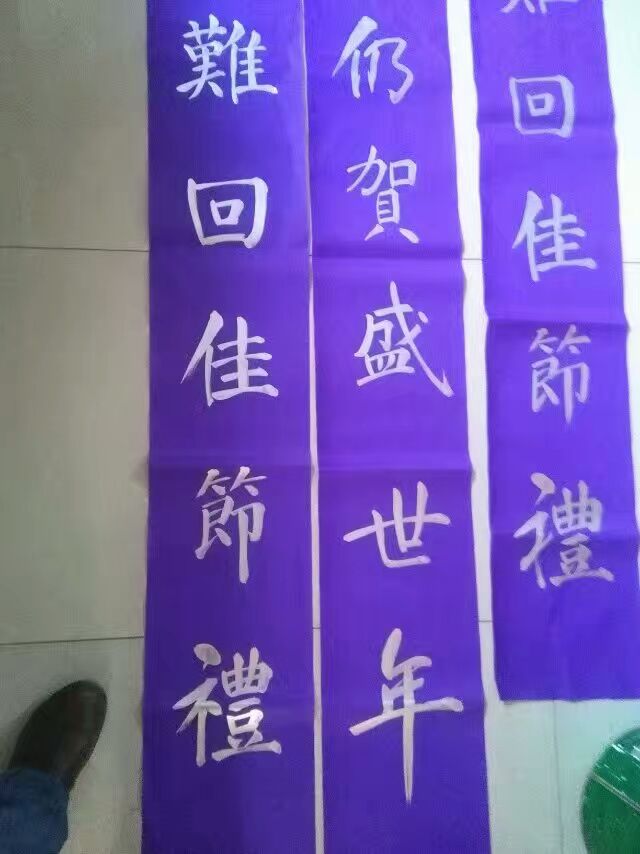 回佳節禮
仍賀盛世年
難回佳節禮